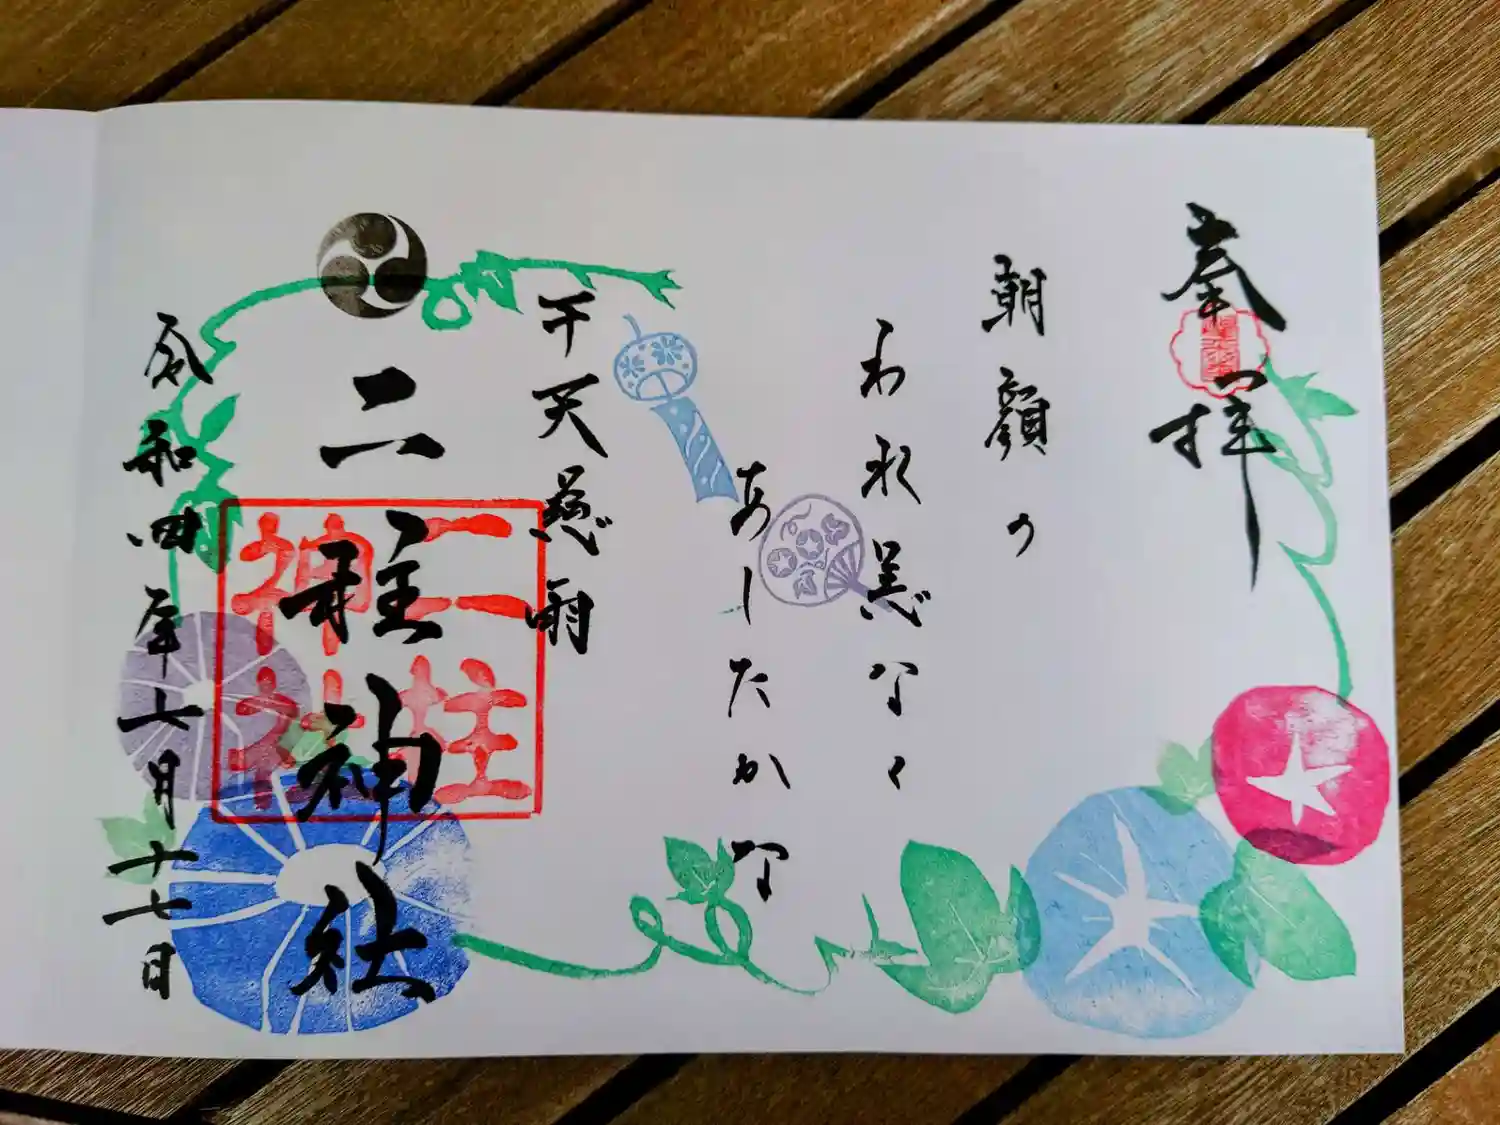 奉拝
朝顔の
われ恙なく
あしたかな
干天慈雨
二柱神社
二柱
神社
令和四年七月十七日